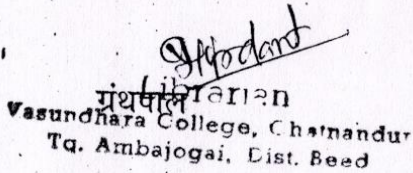 ग्रंथपाल Librarian
Vasundhara College, Chatnandur
Tq. Ambajogai, Dist. Beed